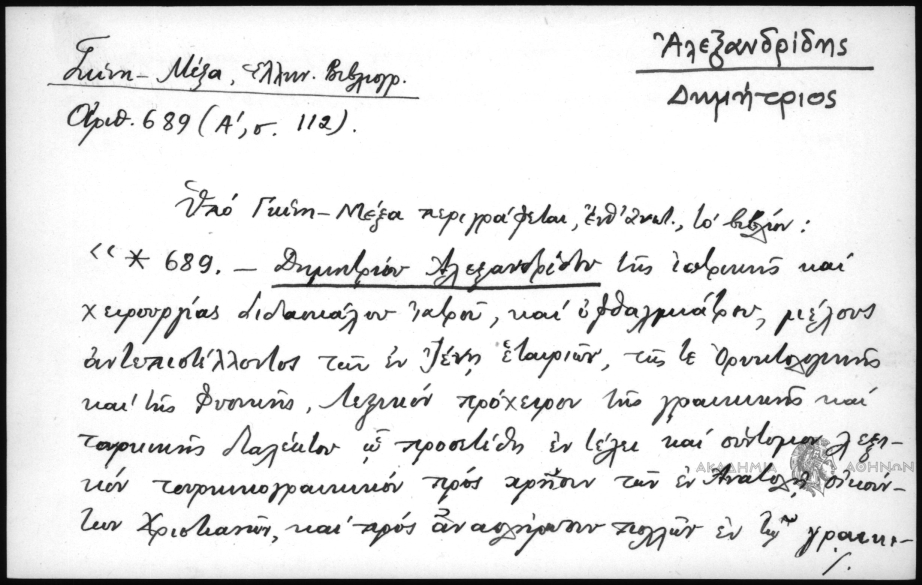 Ἀλεξανδρίδης
Δημήτριος
Γκίνη – Μέξα, Ἑλλην. Βιβλιογρ.
Ἀριθ. 689 (Α', σ. 112).
Ὑπό Γκίνη – Μέξα περιγράφεται, ἔνθ' ἀνωτ., τό βιβλίον:
«* 689. – Δημητρίου Ἀλεξανδρίδου τῆς ἰατρικῆς καί
χειρουργίας διδασκάλου ἰατροῦ, καί ὀφθαλμιάτρου, μέλους
ἀντεπιστέλλοντος τῶν ἐν Ἰένῃ ἑταιριῶν, τῆς τε Ὀρυκτολογικῆς
καί τῆς Φυσικῆς, Λεξικόν πρόχειρον τῆς γραικικῆς καί
τουρκικῆς διαλέκτου ᾧ προσετέθη ἐν τέλει καί σύντομον λεξι-
κόν τουρκικογραικικόν πρός χρῆσιν τῶν ἐν Ἀνατολῇ οἰκούν-
των Χριστιανῶν, καί πρός ἀναπλήρωσιν πολλῶν ἐν τῷ γραικι-
./.
ΑΚΑΔΗΜΙΑ ΑΘΗΝΩΝ